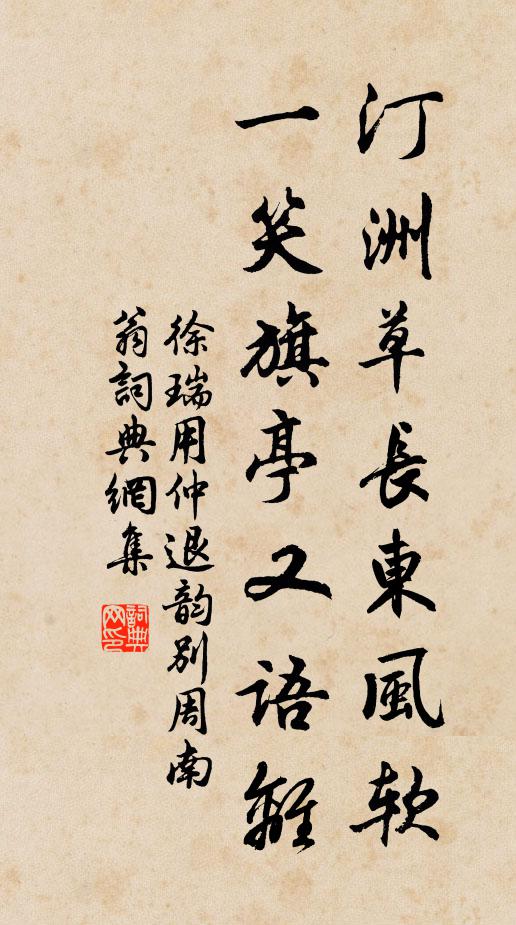 汀洲草長東風软
一笑旗亭又語離
徐瑞用仲退韵别周南
翁詞典網集
詞典网印